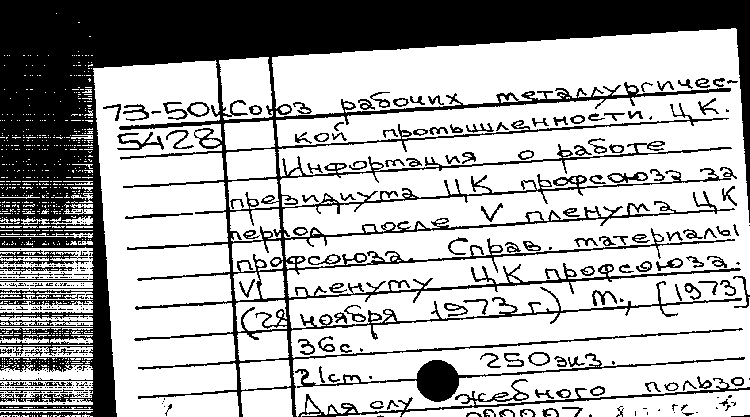 73-50к Союз рабочих металлургичес-
5428 кой промышленности. ЦК.
Информация о работе
президиума ЦК профсоюза за
период после V пленума ЦК
профсоюза. Справ. материалы
VI пленуму ЦК профсоюза.
(28 ноября 1973 г.) М., [1973]
36с.
21см. 250экз.
Для слу жебного пользо